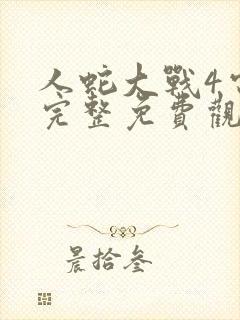 人蛇大戰4
完整免費觀
晨拾叁